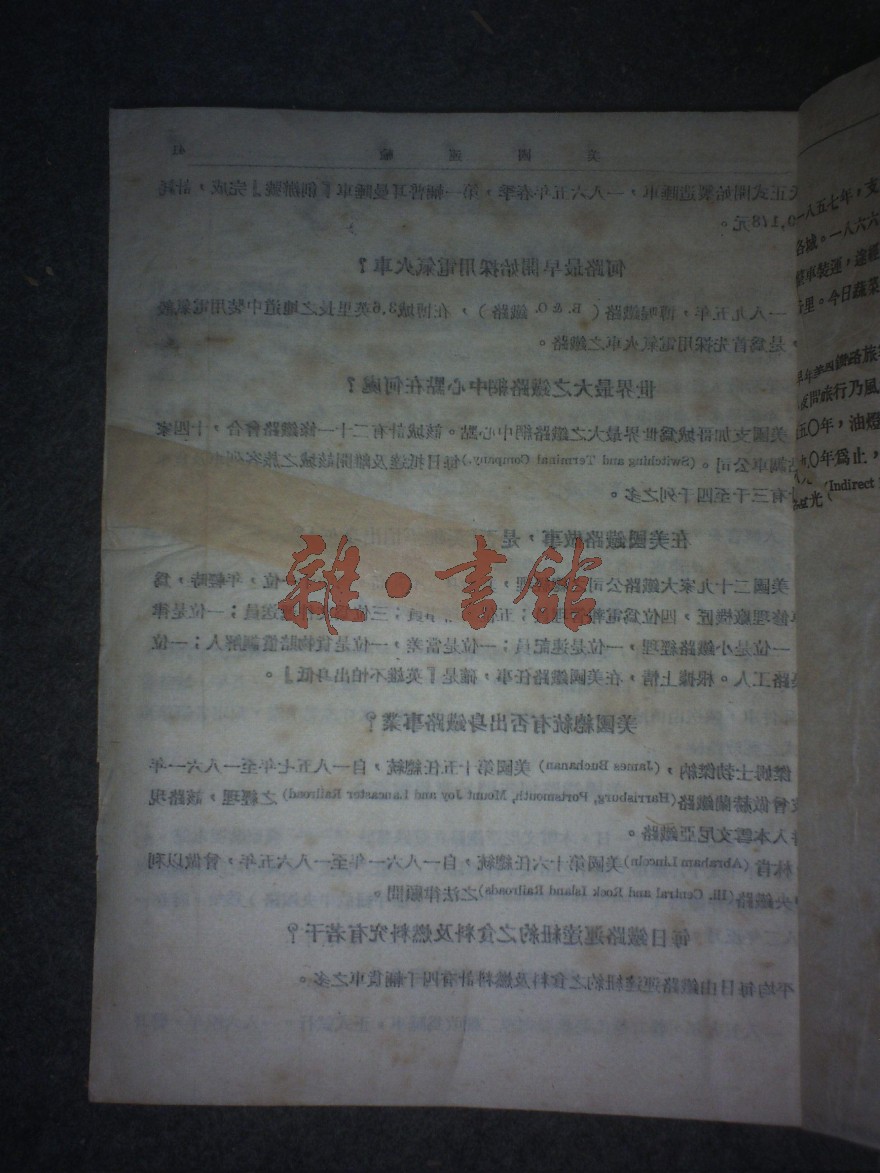 美國運輸 41
正式開始製造睡車，一八六五年春季，第一輛普耳曼睡車『創辦號』完成，計耗
元。
何路最早開始採用電氣火車？
一八九五年，博鴨鐵路（B. & O. 鐵路），在博城3.6英里長之地道中裝用電氣設
，是爲首先採用電氣火車之鐵路。
世界最大之鐵路網中心點在何處？
美國支加哥城爲世界最大之鐵路網中心點。該城計有二十一條鐵路會合，十四家
調車公司。(Switching and Terminal Company.)每日抵達及離開該城之旅客列
有三千至四千列之多。
在美國鐵路做事，是否
美國二十九家大鐵路公司 一位，年輕時，爲
修理廠機匠，四位爲電 員；三位 送員；一位是律
一位是小鐵路經理，一位是速記員；一位是當差，一位是貨物賠償調解人；一位
路工人。根據上情，在美國鐵路任事，誠是『英雄不怕出身低』。
美國總統有否出身鐵路事業？
傑姆士勃傑納，(James Buchanan) 美國第十五任總統，自一八五七年至一八六一年
曾做赫蘭鐵路(Harrisburg, Portsmouth, Mount Joy and Lancaster Railroad)之經理，該路現
入本雪文尼亞鐵路。
林肯 (Abraham Lincoln) 美國第十六任總統，自一八六一年至一八六五年，曾做以利
央鐵路(Ill. Central and Rock Island Railroads)之法律顧問。
每日鐵路運達紐約之食料及燃料究有若干？
平均每日由鐵路運達紐約之食料及燃料計有四千輛貨車之多。
一八五七年，支
各城。一八六六
車裝運，達
里。今日蔬菜
鐵路旅
夜間旅行乃風
五〇年，油燈
九〇年爲止，
光 (Indirect
雜·書館